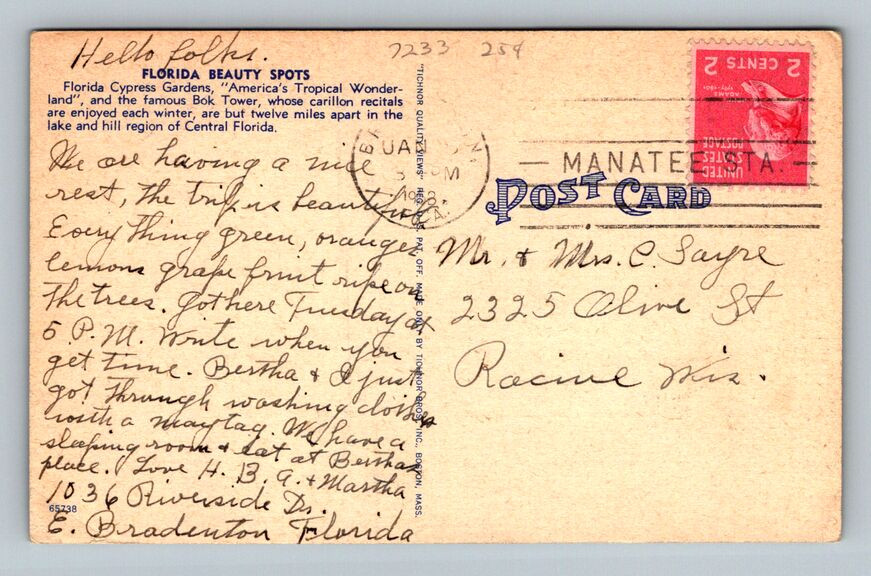 Hello folks.
7233 25¢
FLORIDA BEAUTY SPOTS
Florida Cypress Gardens, "America's Tropical Wonder-
land", and the famous Bok Tower, whose carillon recitals
are enjoyed each winter, are but twelve miles apart in the
lake and hill region of Central Florida.
We are having a nice
rest, the trip is beautiful
Every thing green, oranges
lemons grape fruit ripe on
the trees. Got here Tuesday at
5 P.M. Write when you
get time. Bertha & I just
got through washing clothes
with a maytag. We have a
sleeping room & eat at Berthas
place. Love H. B. A. & Martha
1036 Riverside Dr.
E. Bradenton Florida
65738
"TICHNOR QUALITY VIEWS" REG. U. S. PAT. OFF. MADE ONLY BY TICHNOR BROS. INC., BOSTON, MASS.
2 CENTS 2
ADAMS
UNITED
STATES
POSTAGE
MANATEE STA.
POST CARD
Mr. & Mrs. C. Sayre
2325 Olive St
Racine Wis.